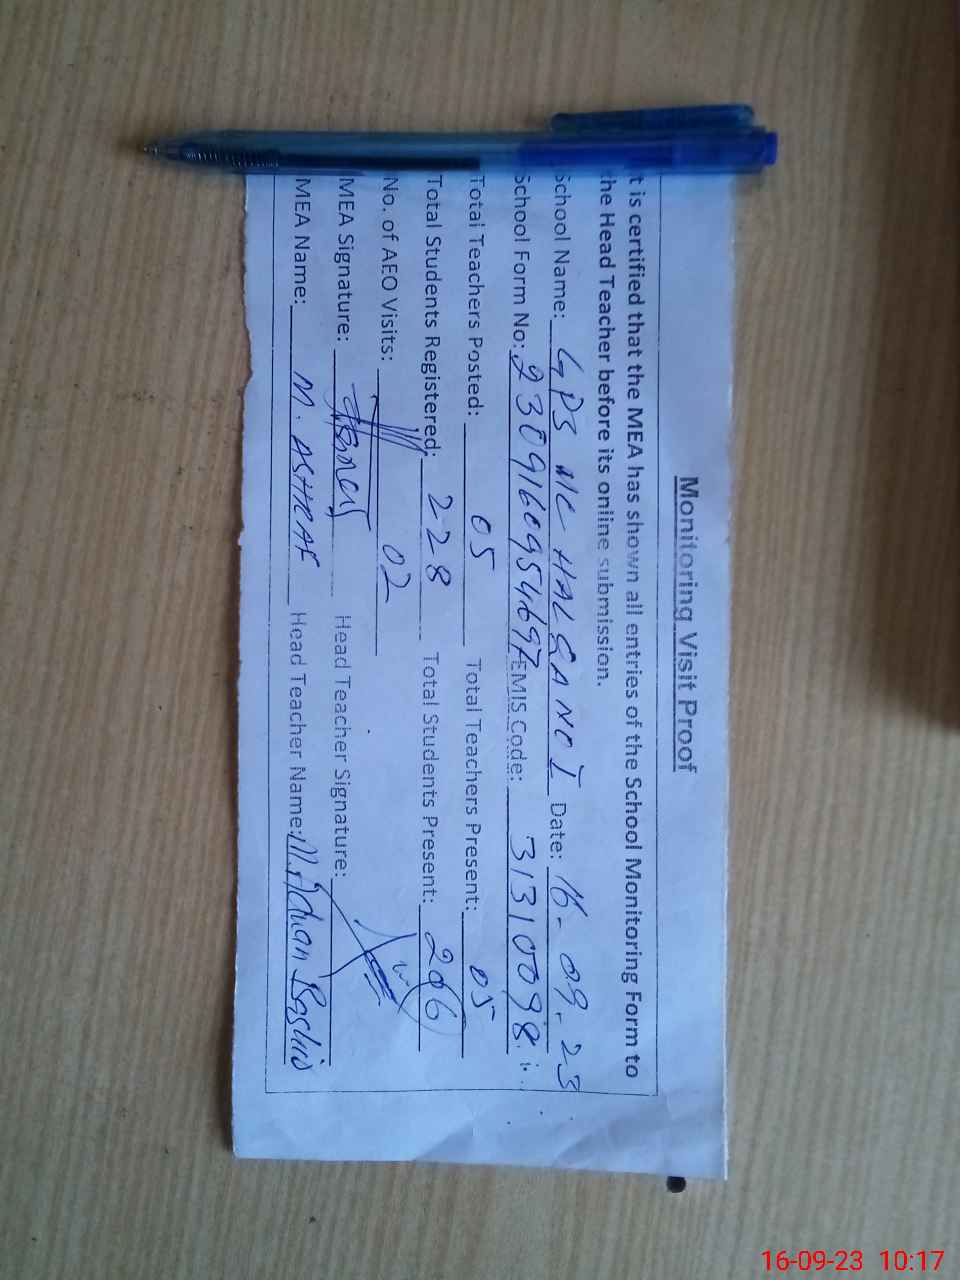 Monitoring Visit Proof
t is certified that the MEA has shown all entries of the School Monitoring Form to
the Head Teacher before its online submission.
School Name: GPS N/C HALQA NO I Date: 16-09-23
School Form No: 2309160954697 EMIS Code: 31310098
Total Teachers Posted: 05 Total Teachers Present: 05
Total Students Registered: 228 Total Students Present: 206
No. of AEO Visits: 02
MEA Signature: Head Teacher Signature:
MEA Name: M. ASHRAF Head Teacher Name: M. Adnan Bashir
16-09-23 10:17